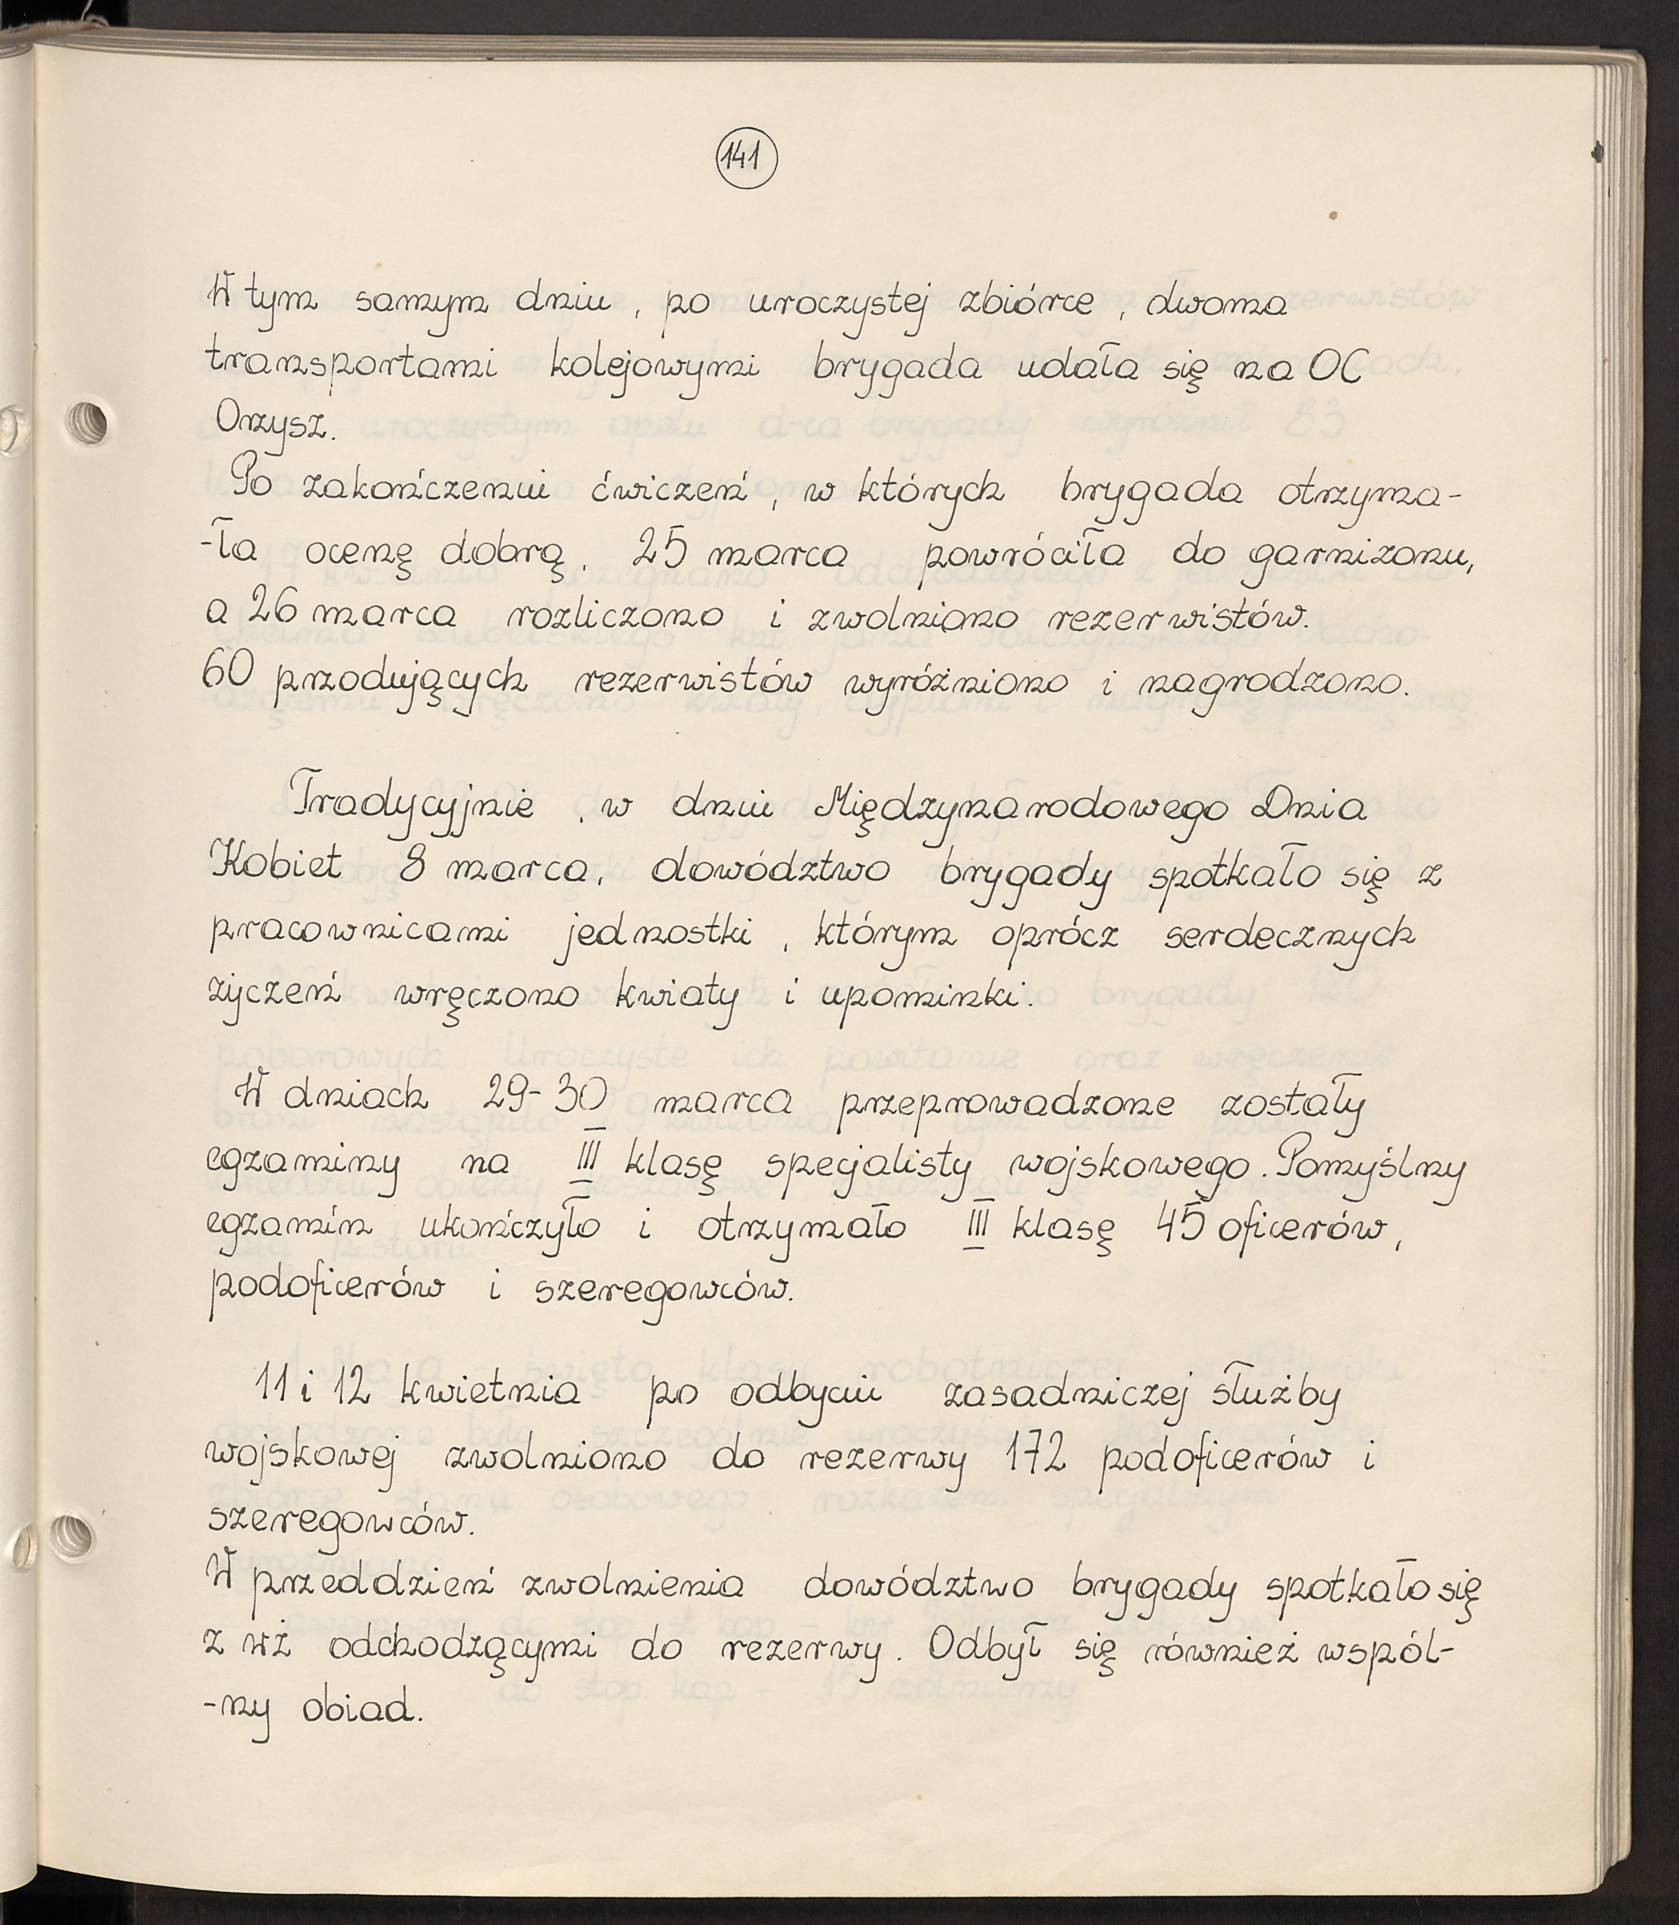 141
W tym samym dniu, po uroczystej zbiórce, dwoma
transportami kolejowymi brygada udała się na OC
Orzysz.
Po zakończeniu ćwiczeń, w których brygada otrzyma-
-ła ocenę dobrą, 25 marca powróciła do garnizonu,
a 26 marca rozliczono i zwolniono rezerwistów.
60 przodujących rezerwistów wyróżniono i nagrodzono.
Tradycyjnie, w dniu Międzynarodowego Dnia
Kobiet 8 marca, dowództwo brygady spotkało się z
pracownicami jednostki, którym oprócz serdecznych
życzeń wręczono kwiaty i upominki.
W dniach 29-30 marca przeprowadzone zostały
egzaminy na III klasę specjalisty wojskowego. Pomyślny
egzamin ukończyło i otrzymało III klasę 45 oficerów,
podoficerów i szeregowców.
11 i 12 kwietnia po odbyciu zasadniczej służby
wojskowej zwolniono do rezerwy 172 podoficerów i
szeregowców.
W przeddzień zwolnienia dowództwo brygady spotkało się
z wż odchodzącymi do rezerwy. Odbył się również wspól-
-ny obiad.